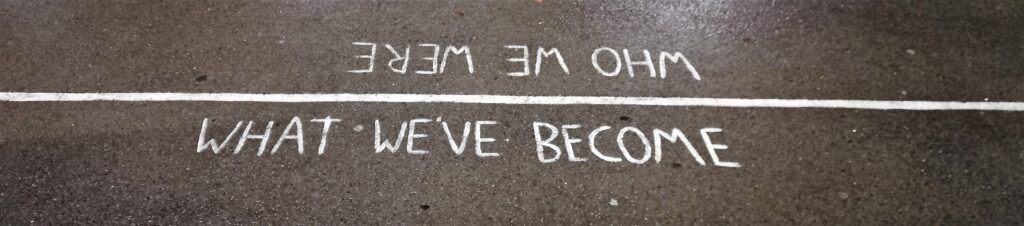 WHO WE WERE
WHAT WE'VE BECOME